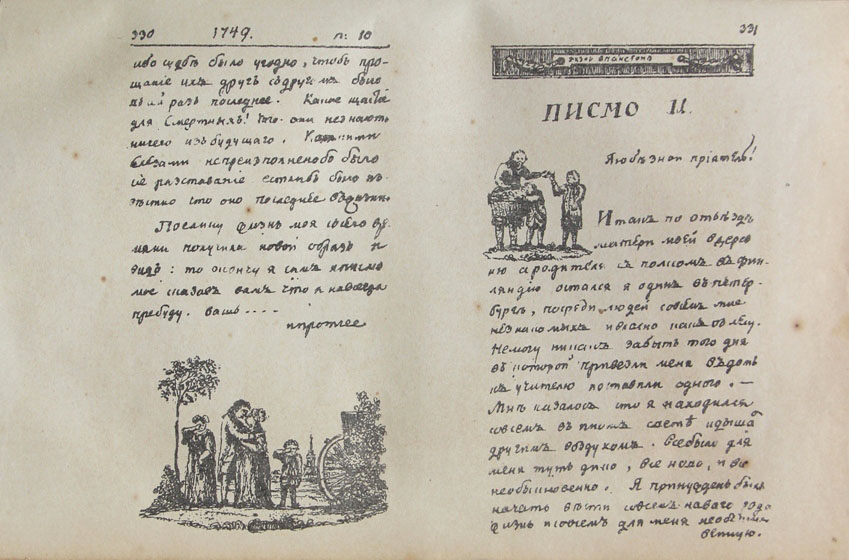 330 1749. п: 10
иво судбѣ было угодно, чтобъ про-
щаніе ихъ другъ съ другомъ было
разъ последнее. Какое щастіе
для Смертныхъ! что они незнаютъ
ничего изъ будущаго. Какими
слезами неспреизполненобо было
сіе разставаніе естлибъ было из-
вѣстно что оно последнее вѣжизни
Поелику жизнь моя совсего вре-
мяни получила новой образъ и
видъ: то окончу я симъ писмо
мое сказавъ вамъ что я навсегда
пребуду. вашъ ----
и протчее
331
ПИСМО 11.
Любѣзной пріятель!
Итакъ по отъѣздѣ
матери моей в дерев
ню а родителя съ полкомъ въ Фин-
ляндію остался я одинъ въ петер-
бургѣ, посреди людей совсем мне
незнакомыхъ
Немогу никакъ забыть того дня
въ которой привезли меня въ домъ
къ учителю поставили одного. —
Мнѣ казалось что я находился
совсемъ въ иномъ светѣ идышалъ
другимъ воздухомъ. Все было для
меня тутъ дико, все ново, и все
необыкновенно. Я принужденъ былъ
начать вести совсемъ новаго рода
жизнь и совсемъ для меня необыкно
венную.